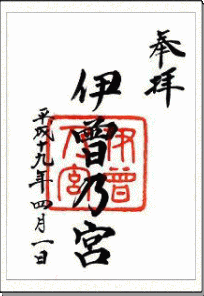 奉拝
伊曽乃宮
伊曽乃宮
平成十九年四月一日